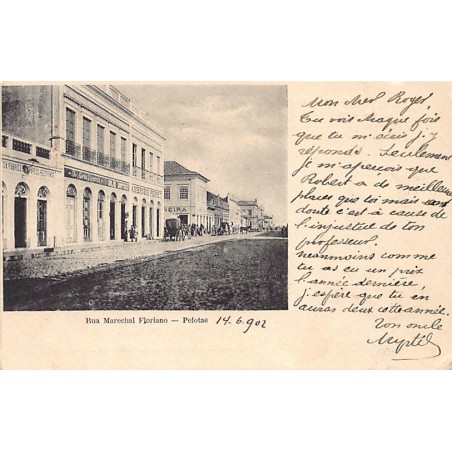 Mon cher Roger
Tu vois chaque fois
que tu m'écris j'y
réponds. Seulement
je m'aperçois que
Robert a de meilleures
places que toi mais sans
doute c'est à cause de
l'injustice de ton
professeur.
néanmoins comme
tu as eu un prix
l'année dernière,
j'espère que tu en
auras deux cette année.
Ton oncle
Rua Marechal Floriano — Pelotas 14.6.902